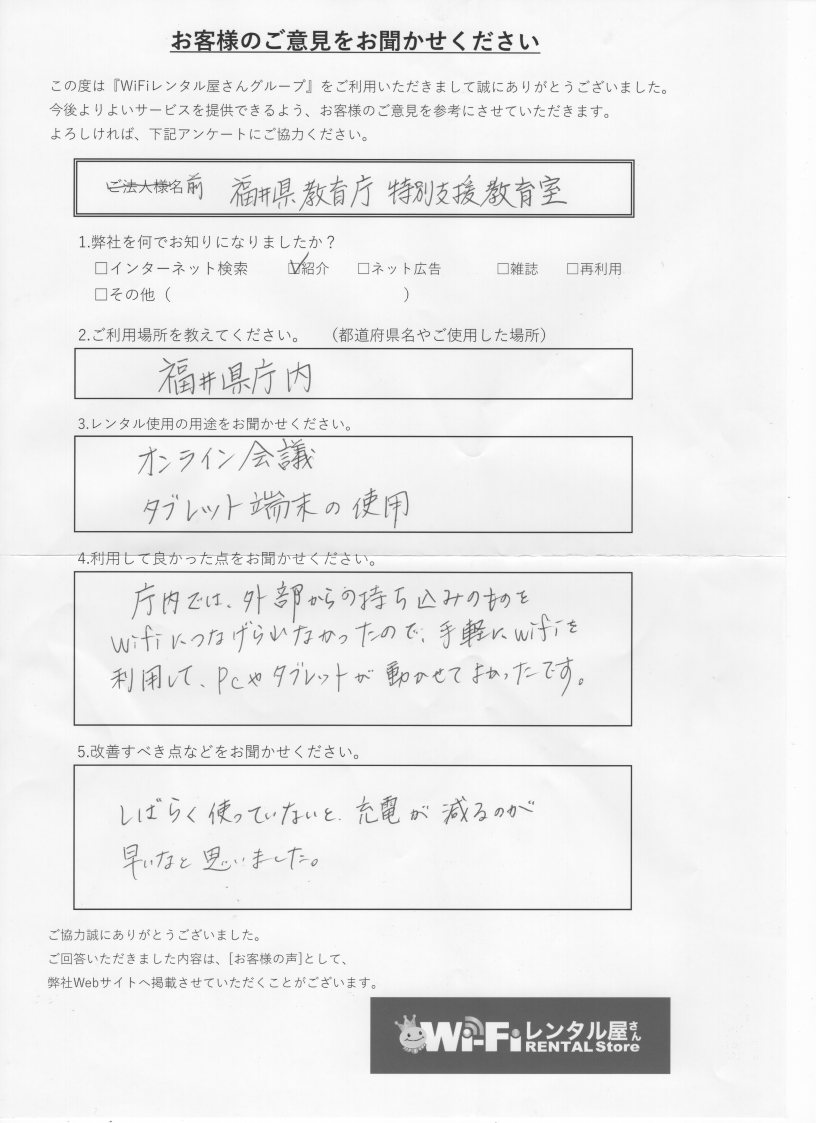 お客様のご意見をお聞かせください
この度は『WiFiレンタル屋さんグループ』をご利用いただきまして誠にありがとうございました。
今後よりよいサービスを提供できるよう、お客様のご意見を参考にさせていただきます。
よろしければ、下記アンケートにご協力ください。
ご法人様名前 福井県教育庁 特別支援教育室
1.弊社を何でお知りになりましたか？
□インターネット検索 ☑紹介 □ネット広告 □雑誌 □再利用
□その他（ ）
2.ご利用場所を教えてください。 （都道府県名やご使用した場所）
福井県庁内
3.レンタル使用の用途をお聞かせください。
オンライン会議
タブレット端末の使用
4.利用して良かった点をお聞かせください。
庁内では、外部からの持ち込みのものを
wifiにつなげられなかったので、手軽にwifiを
利用して、PCやタブレットが動かせてよかったです。
5.改善すべき点などをお聞かせください。
しばらく使っていないと、充電が減るのが
早いなと思いました。
ご協力誠にありがとうございました。
ご回答いただきました内容は、[お客様の声]として、
弊社Webサイトへ掲載させていただくことがございます。
Wi-Fiレンタル屋さん
RENTAL Store